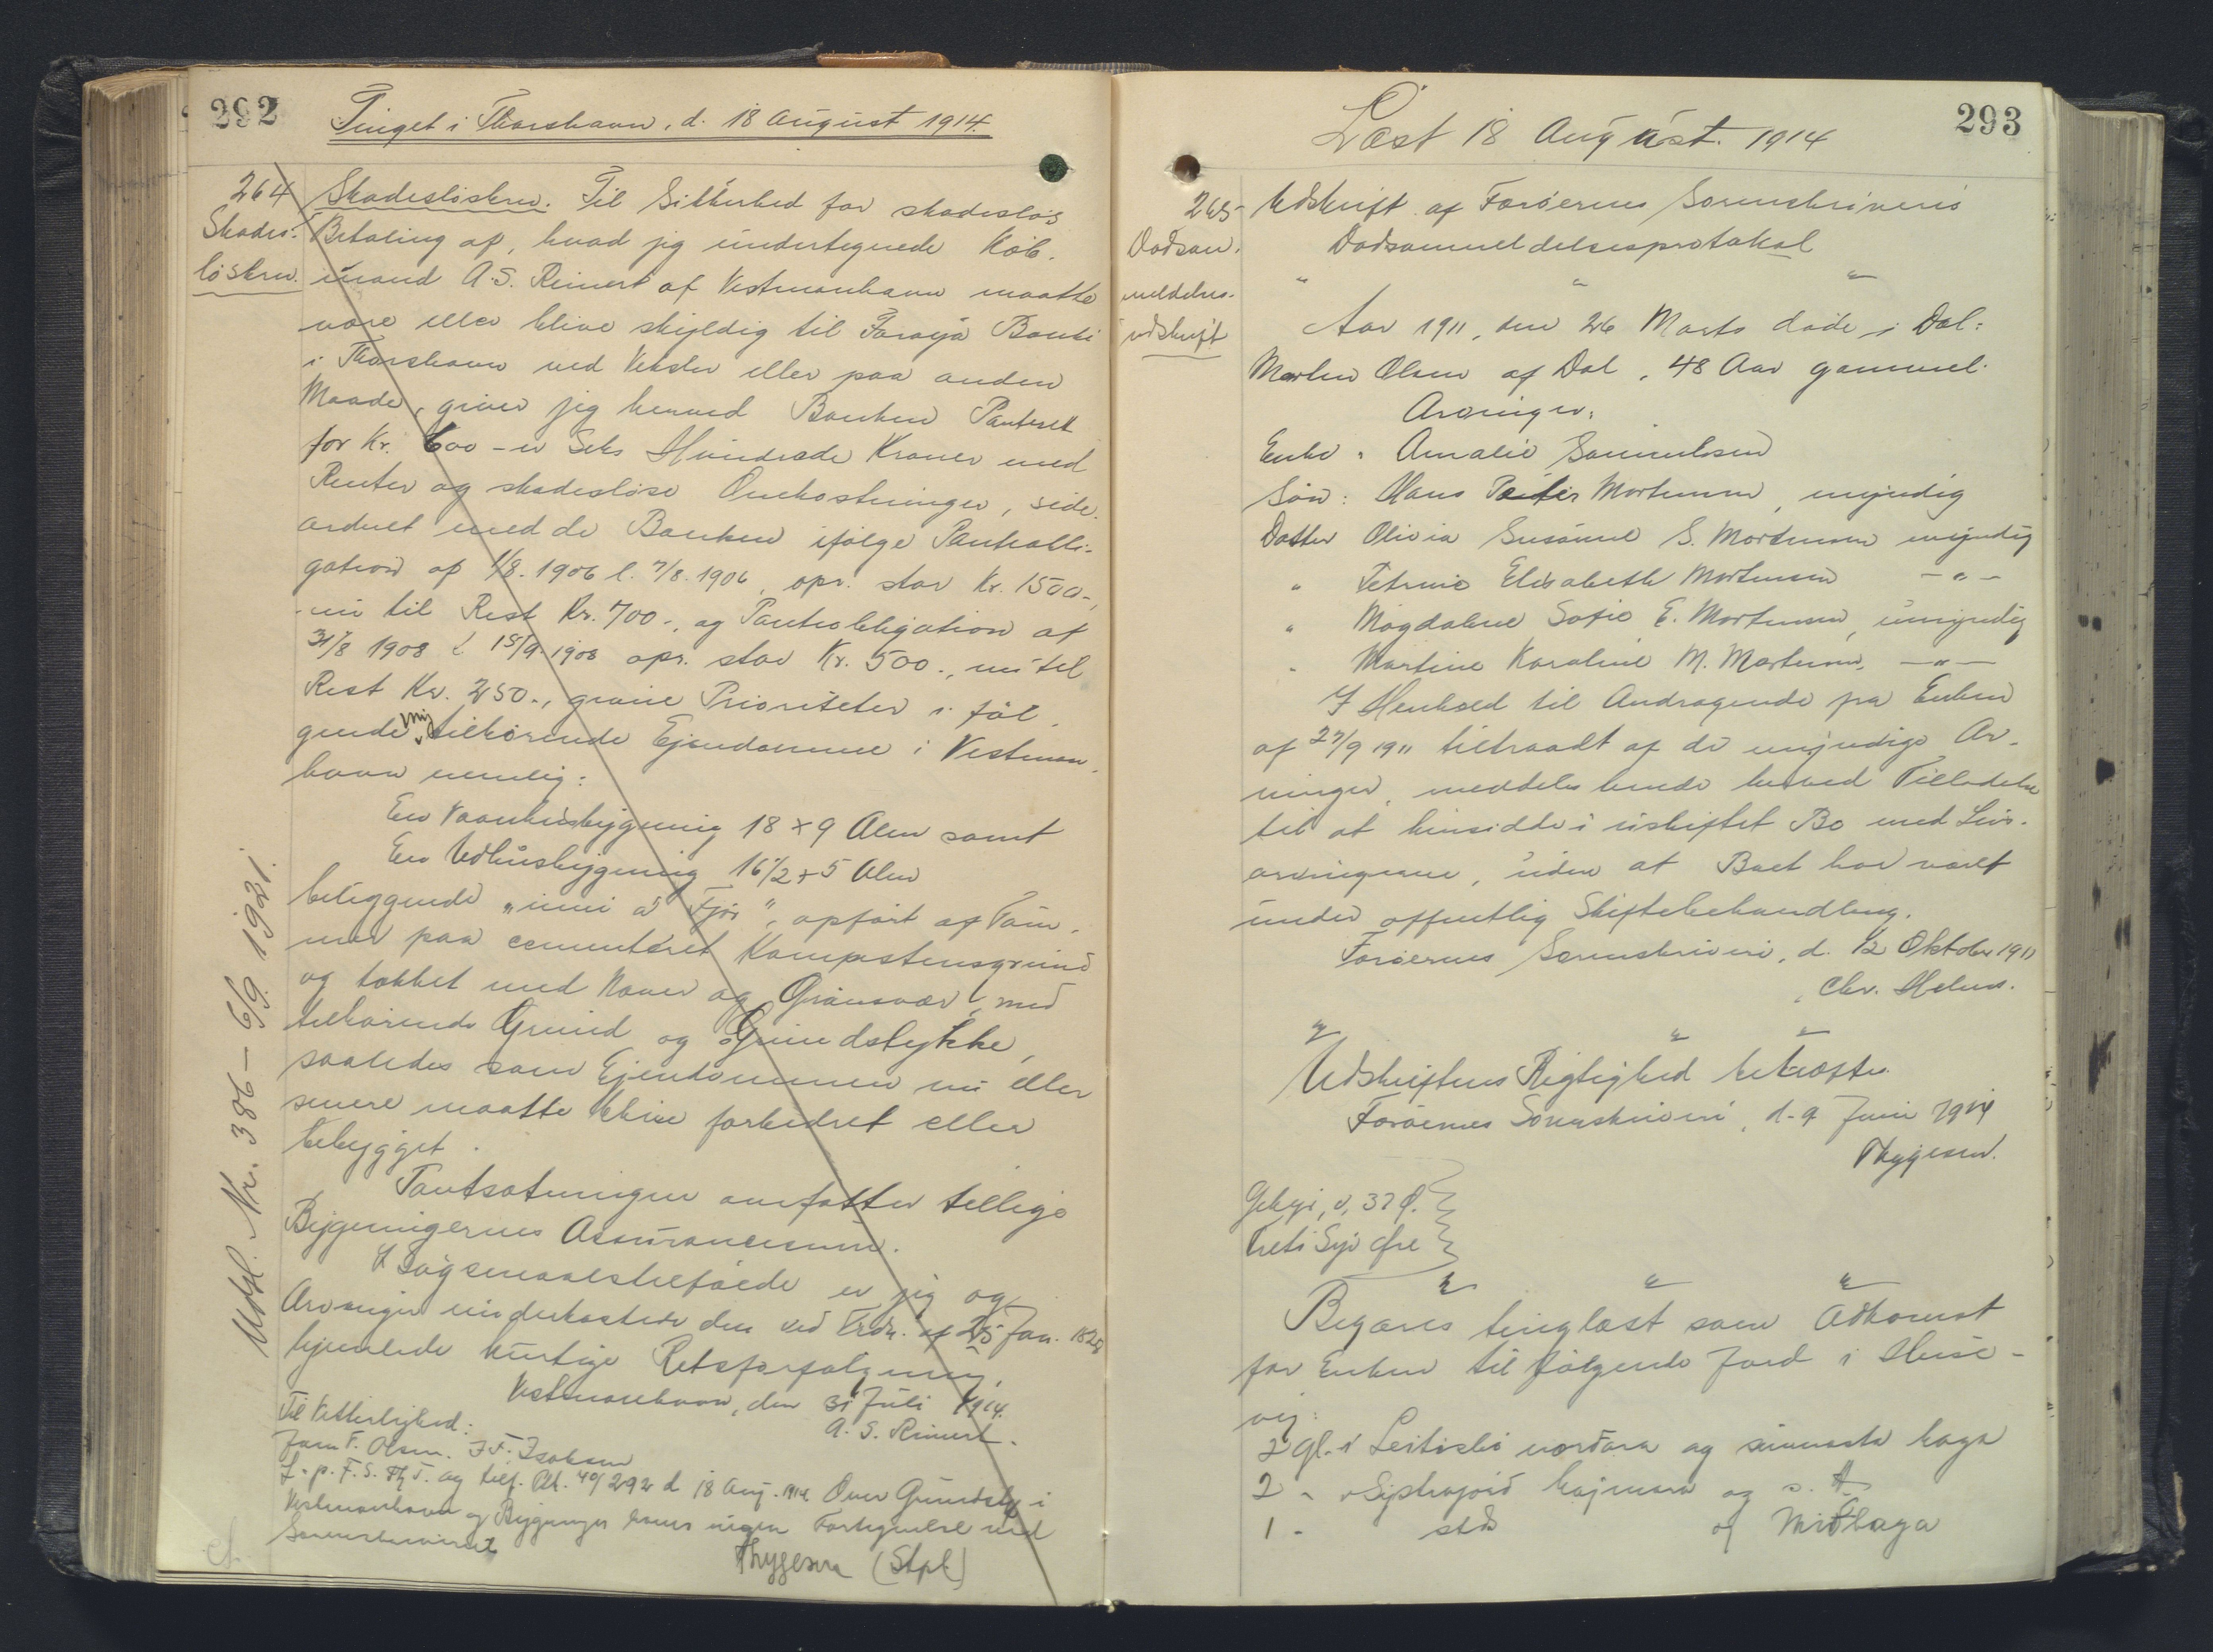 292
Tinget i Thorshavn, d. 18 August 1914.
264
Skades-
løsbrev.
Skadesløsbrev. Til Sikkerhed for skadesløs
Betaling af, hvad jeg undertegnede Køb-
mand A.S. Reinert af Vestmanhavn maatte
være eller blive skyldig til Føroya Banki
i Thorshavn ved Veksler eller paa anden
Maade, giver jeg herved Banken Panteret
for Kr. 600 - er Seks Hundrede Kroner med
Renter og skadesløse Omkostninger, side-
ordnet med de Banken ifølge Pantobli-
gation af 1/8. 1906 l. 7/8. 1906, opr. stor Kr. 1500-,
nu til Rest Kr. 700-, og Panteobligation af
31/8 1908 l 15/9 1908 opr. stor Kr. 500-, nu til
Rest Kr. 250-, givne Prioriteter i føl-
gende mig tilhørende Ejendomme i Vestman-
havn nemlig:
En Vaaanhusbygning 18 x 9 Alen samt
En Udhusbygning 16 1/2 x 5 Alen
beliggende "inni á Fjør", opført af Tøm-
mer paa cementeret Kampestensgrund
og tækket med Næver og Grønsvær, med
tilhørende Grund og Grundstykke,
saaledes som Ejendommen nu eller
senere maatte blive forbedret eller
bebygget.
Pantsætningen omfatter tillige
Bygningernes Assurancesum.
I Søgsmaalstilfælde er jeg og
Arvinger underkastede den ved Frdn. af 25 Jan. 1828
hjemlede hurtige Retsforfølgning.
Vestmanhavn, den 31 Juli 1914.
A. S. Reinert.
Til Vitterlighed:
Joen F. Olsen. J.F. Isaksen
L. p. F. S. Th J. og tilf. Pk. 40/292 d 18 Aug. 1914. Over Grundstk i
Vestmanhavn og Bygninger haves ingen Fortegnelse ved
Sorenskriveriet
Thygesen (Stpl)
Udsl. Nr. 386 - 6/9. 1921.
293
Læst 18 August. 1914
265-
Dødsan-
meldelses-
udskrift
Udskrift af Færøernes Sorenskriveris
Dødsanmeldelsesprotokol
" " "
Aar 1911, den 26 Marts døde i Dal:
Morten Olsen af Dal, 48 Aar gammel.
Arvinger:
Enke: Amalie Samuelsen
Søn: Hans Peter Mortensen, umyndig
Datter Olivia Susanne S. Mortensen umyndig
" Petrine Elisabeth Mortensen -"-
" Magdalene Sofie E. Mortensen, umyndig
" Martine Karoline M. Mortensen, -"-
I Henhold til Andragende fra Enken
af 27/9 1911 tiltraadt af de umyndige Ar-
vinger, meddeles hende herved Tilladelse
til at hensidde i uskiftet Bo med Livs-
arvingerne, uden at Boet har været
under offentlig Skiftebehandling.
Færøernes Sorenskriveri, d. 12 Oktober 1911
Chr. Helms.
" " "
Udskriftens Rigtighed bekræftes
Færøernes Sorenskriveri, d. 9 Juni 1914
Thygesen.
Gebyr, 37 Ø.
Treti Syv Øre
" " "
Begæres tinglæst som Adkomst
for Enken til følgende Jord i Huse-
vig:
2 gl. i Leitislei norðara og sunnasta haga
2 - og s. st.
1 - sstds og Miðhaga